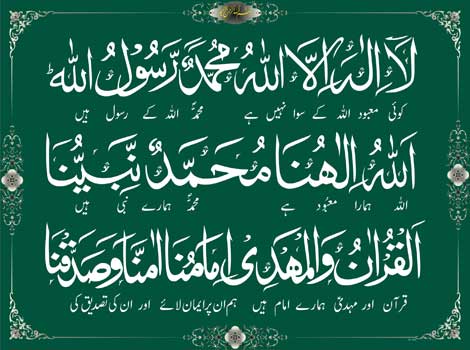 لَآ اِلٰهَ اِلَّا اللهُ مُحَمَّدٌ رَّسُوْلُ اللهِ ؕ
کوئی معبود اللہ کے سوا نہیں ہے محمدؐ اللہ کے رسول ہیں
اَللهُ اِلٰهُنَا مُحَمَّدٌ نَّبِيُّنَا
اللہ ہمارا معبود ہے محمدؐ ہمارے نبی ہیں
اَلْقُرْاٰنُ وَالْمَهْدِی اِمَامُنَا اٰمَنَّا وَصَدَّقْنَا
قرآن اور مہدیؑ ہمارے امام ہیں ہم ان پر ایمان لائے اور ان کی تصدیق کی